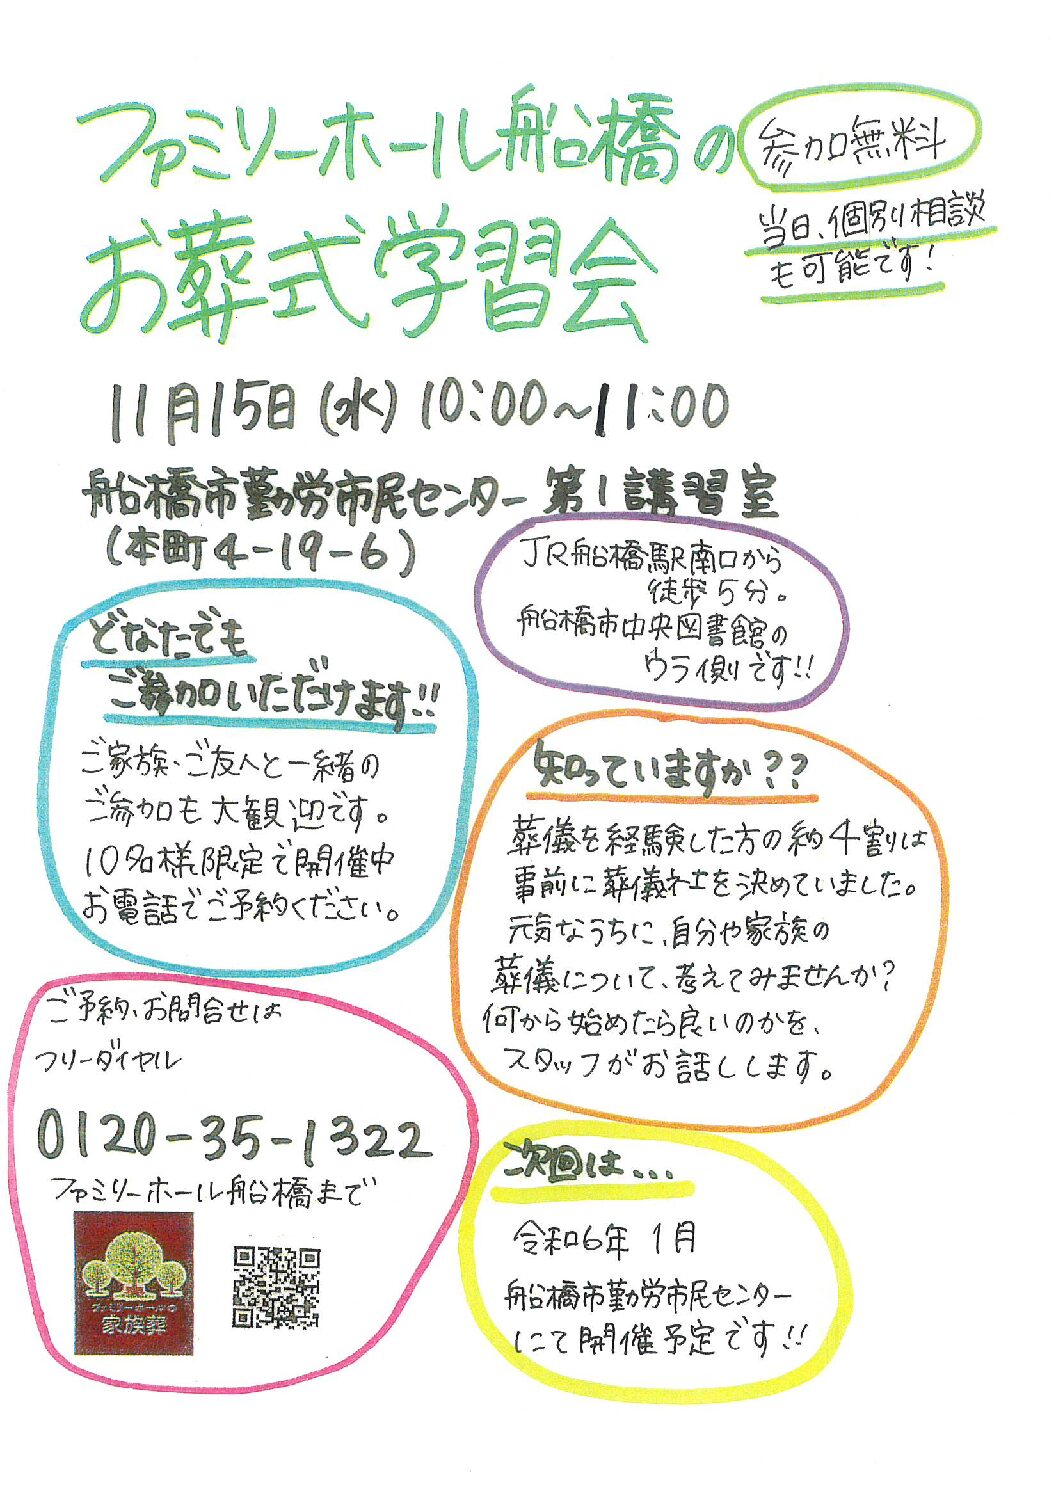 ファミリーホール船橋の
お葬式学習会
参加無料
当日、個別相談
も可能です!
11月15日(水)10:00~11:00
船橋市勤労市民センター 第1講習室
(本町4-19-6)
JR船橋駅南口から
徒歩5分。
船橋市中央図書館の
ウラ側です!!
どなたでも
ご参加いただけます!!
ご家族・ご友人と一緒の
ご参加も大観迎です。
10名様限定で開催中
お電話でご予約ください。
知っていますか??
葬儀を経験した方の約4割は
事前に葬儀社を決めていました。
元気なうちに、自分や家族の
葬儀について、考えてみませんか?
何から始めたら良いのかを、
スタッフがお話しします。
ご予約、お問合せは
フリーダイヤル
0120-35-1322
ファミリーホール船橋まで
ファミリーホールの
家族葬
次回は...
令和6年 1月
船橋市勤労市民センター
にて開催予定です!!